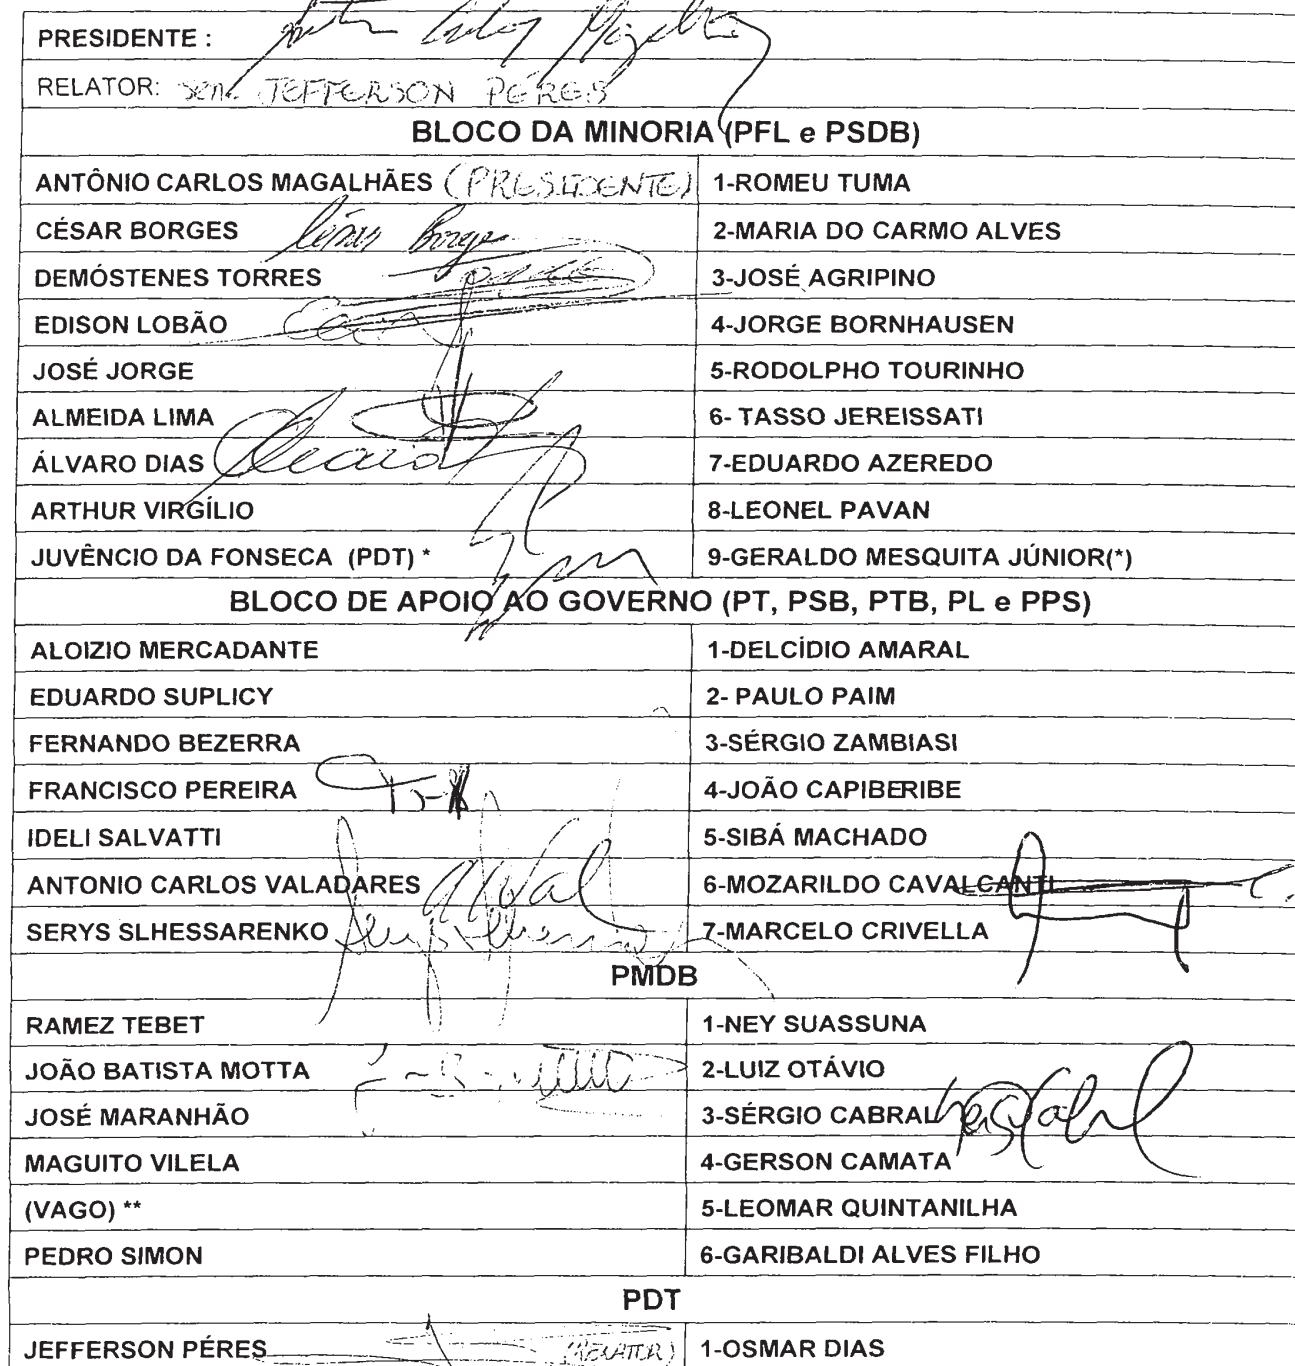 PRESIDENTE :
RELATOR: Sen. JEFFERSON PÉRES
BLOCO DA MINORIA (PFL e PSDB)
ANTÔNIO CARLOS MAGALHÃES (PRESIDENTE) 1-ROMEU TUMA
CÉSAR BORGES César Borges 2-MARIA DO CARMO ALVES
DEMÓSTENES TORRES 3-JOSÉ AGRIPINO
EDISON LOBÃO 4-JORGE BORNHAUSEN
JOSÉ JORGE 5-RODOLPHO TOURINHO
ALMEIDA LIMA 6- TASSO JEREISSATI
ÁLVARO DIAS 7-EDUARDO AZEREDO
ARTHUR VIRGÍLIO 8-LEONEL PAVAN
JUVÊNCIO DA FONSECA (PDT) * 9-GERALDO MESQUITA JÚNIOR(*)
BLOCO DE APOIO AO GOVERNO (PT, PSB, PTB, PL e PPS)
ALOIZIO MERCADANTE 1-DELCÍDIO AMARAL
EDUARDO SUPLICY 2- PAULO PAIM
FERNANDO BEZERRA 3-SÉRGIO ZAMBIASI
FRANCISCO PEREIRA 4-JOÃO CAPIBERIBE
IDELI SALVATTI 5-SIBÁ MACHADO
ANTONIO CARLOS VALADARES 6-MOZARILDO CAVALCANTI
SERYS SLHESSARENKO 7-MARCELO CRIVELLA
PMDB
RAMEZ TEBET 1-NEY SUASSUNA
JOÃO BATISTA MOTTA 2-LUIZ OTÁVIO
JOSÉ MARANHÃO 3-SÉRGIO CABRAL
MAGUITO VILELA 4-GERSON CAMATA
(VAGO) ** 5-LEOMAR QUINTANILHA
PEDRO SIMON 6-GARIBALDI ALVES FILHO
PDT
JEFFERSON PÉRES (RELATOR) 1-OSMAR DIAS